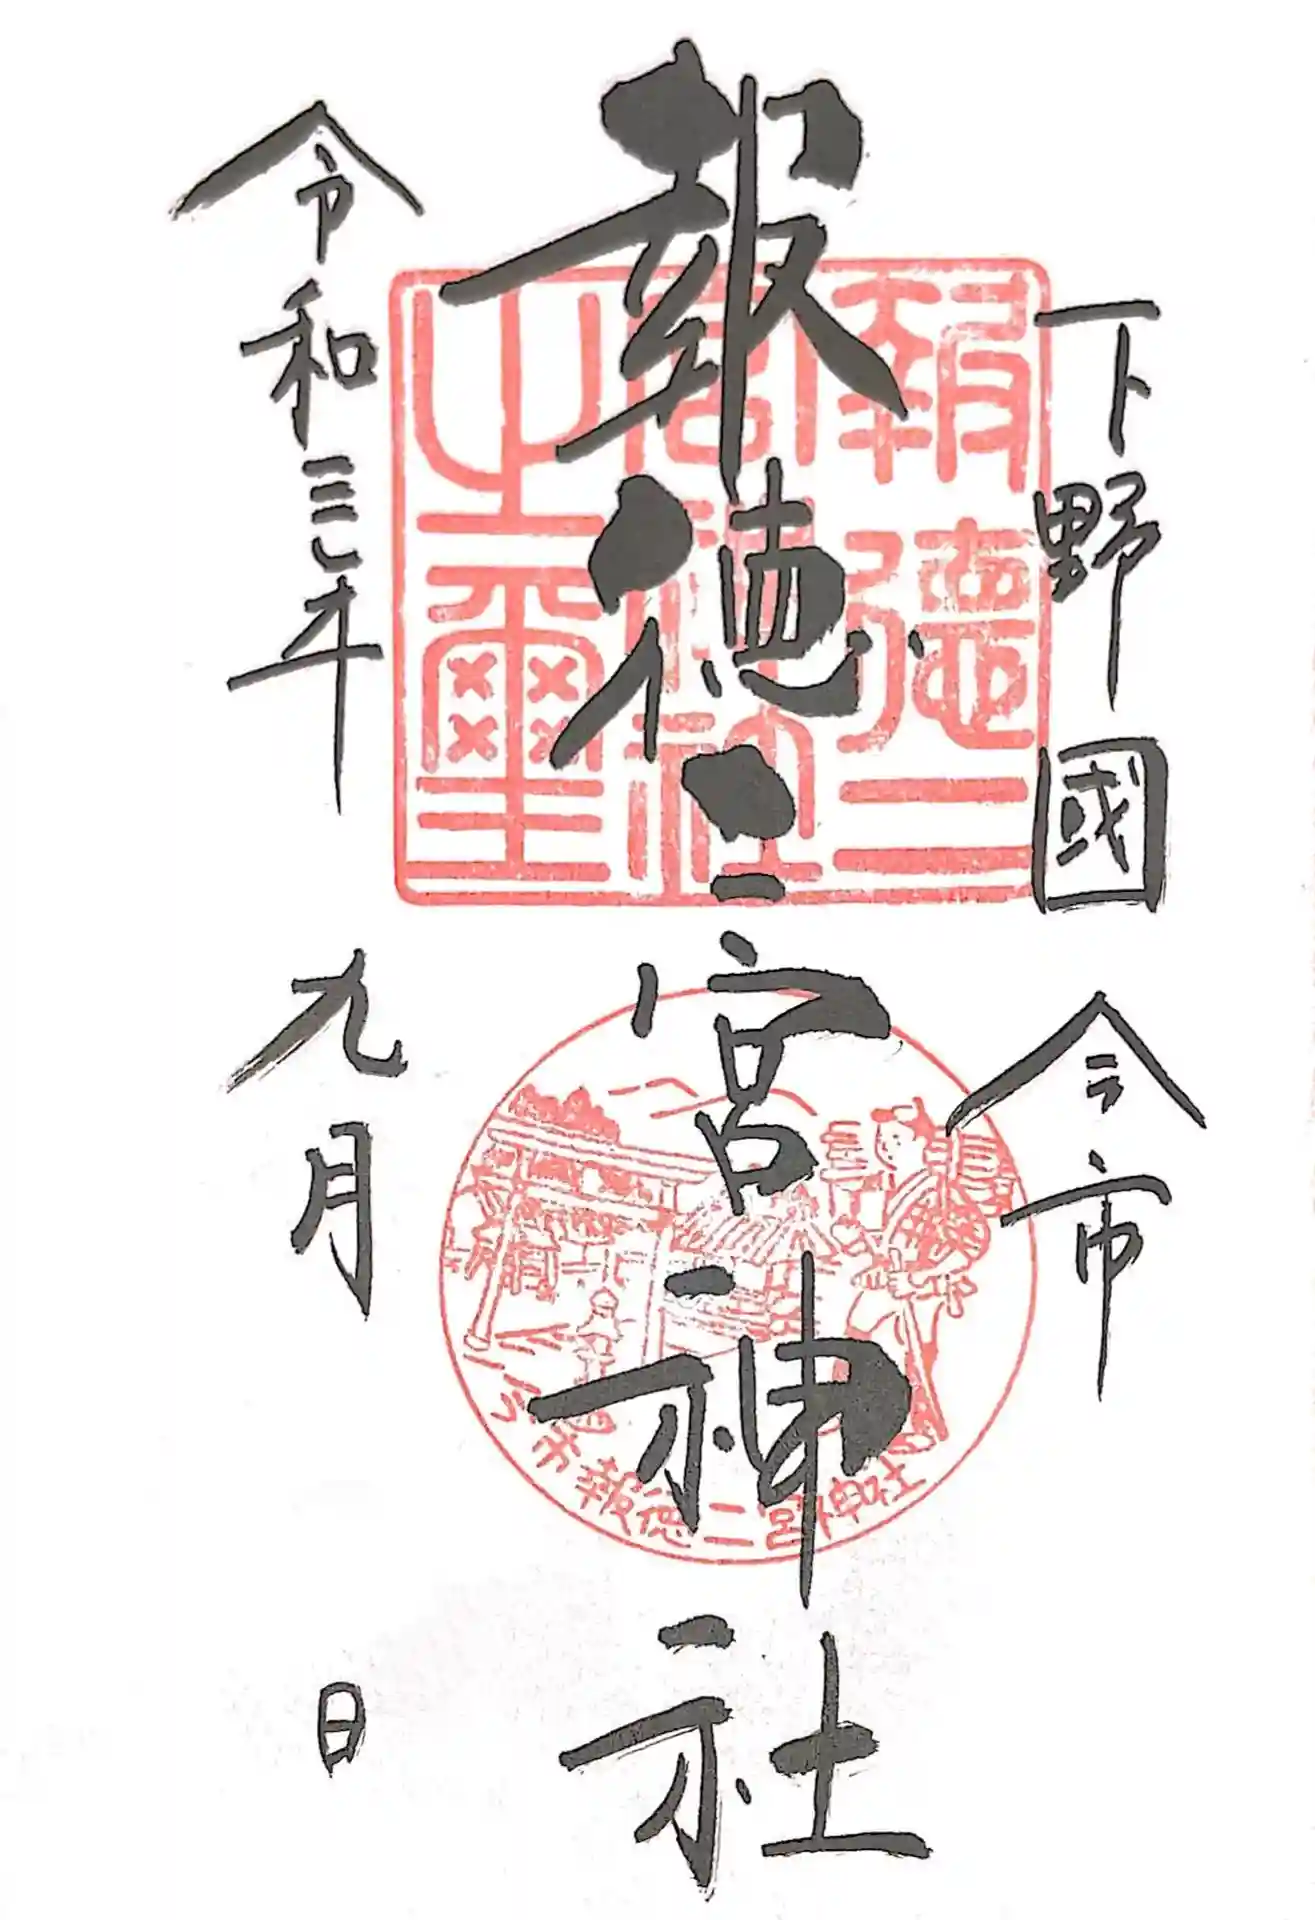 下野國 今市
報徳二宮神社
令和三年 九月 日
報徳二
宮神社
之璽
今市報徳二宮神社